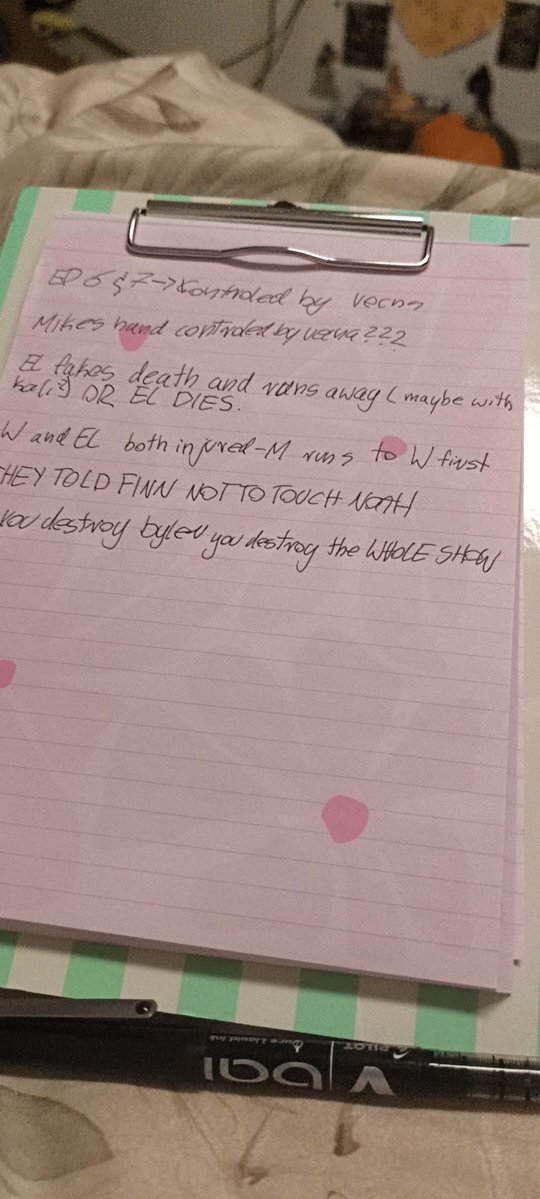 EP 6 & 7 -> Controled by vecna
Mikes hand controled by vecna???
EL fakes death and runs away (maybe with
kali?) OR EL DIES.
W and EL both injured - M runs to W first
THEY TOLD FINN NOT TO TOUCH NOAH
You destroy byler you destroy the WHOLE SHOW
Pure Liquid Ink
PILOT
V ball